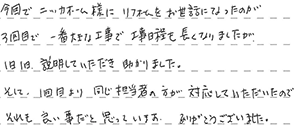 今回で ニッカホーム様に リフォームを お世話になったのが
3回目で 一番大きな工事で 工事日程も長くなりましたが
1日1日 説明していただき 助かりました。
そして、1回目より 同じ担当者の方が 対応していただいたので
それも 良い事だと 思っています。 ありがとうございました。